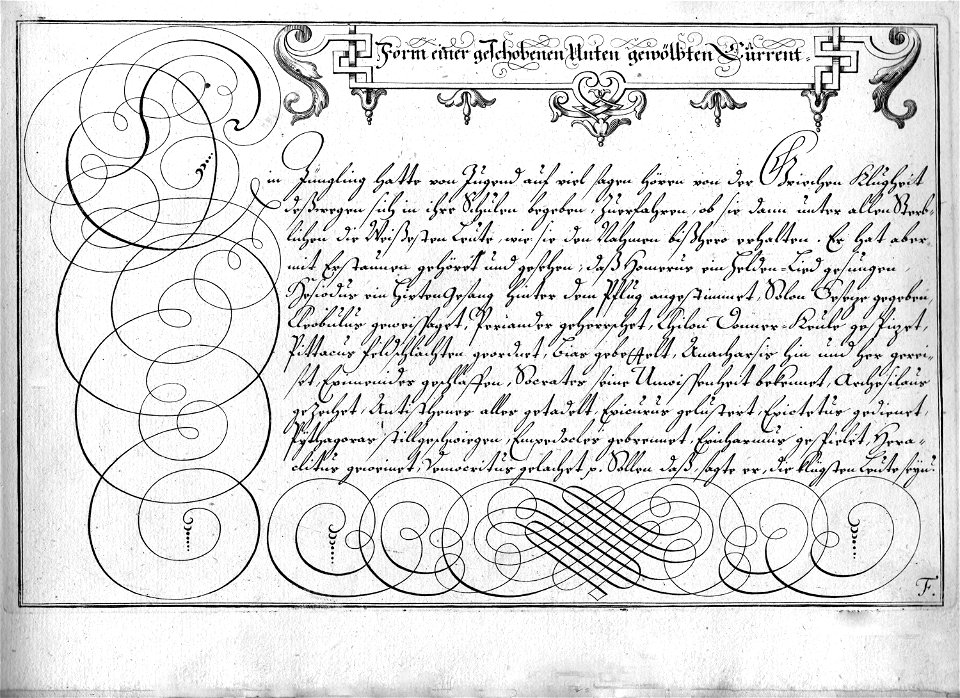 Form einer geschobenen Unten gewölbten Current.
Ein Jüngling hatte von Jugend auf viel sagen hören von der Griechen Klugheit
deßwegen sich in ihre Schulen begeben, zuerfahren, ob sie dann unter allen Sterb-
lichen die Weisesten Leute, wie sie den Nahmen bißhero erhalten. Er hat aber
mit Erstaunen gehöret und gesehen, daß Homerus ein Helden-Lied gesungen,
Hesiodus ein Hirten Gesang hinter dem Pflug angestimmet, Solon Geseze gegeben,
Cleobulus geweissaget, Periander geherrschet, Chilon Donner-Keule gespizet,
Pittacus Feldschlachten geordnet, Bias gebettelt, Anacharsis hin und her gerei-
set, Epimenides geschlaffen, Socrates seine Unwissenheit bekennet, Archesilaus
gezechet, Antisthenes alles getadelt, Epicurus gelüstert, Epictetus gedienet,
Pythagoras stillgeschwiegen, Empedocles gebrennet, Epicharmus gespielet, Hera-
clitus geweinet, Democritus gelachet p. Sollen daß, sagte er, die klügsten Leute seyn.
F.